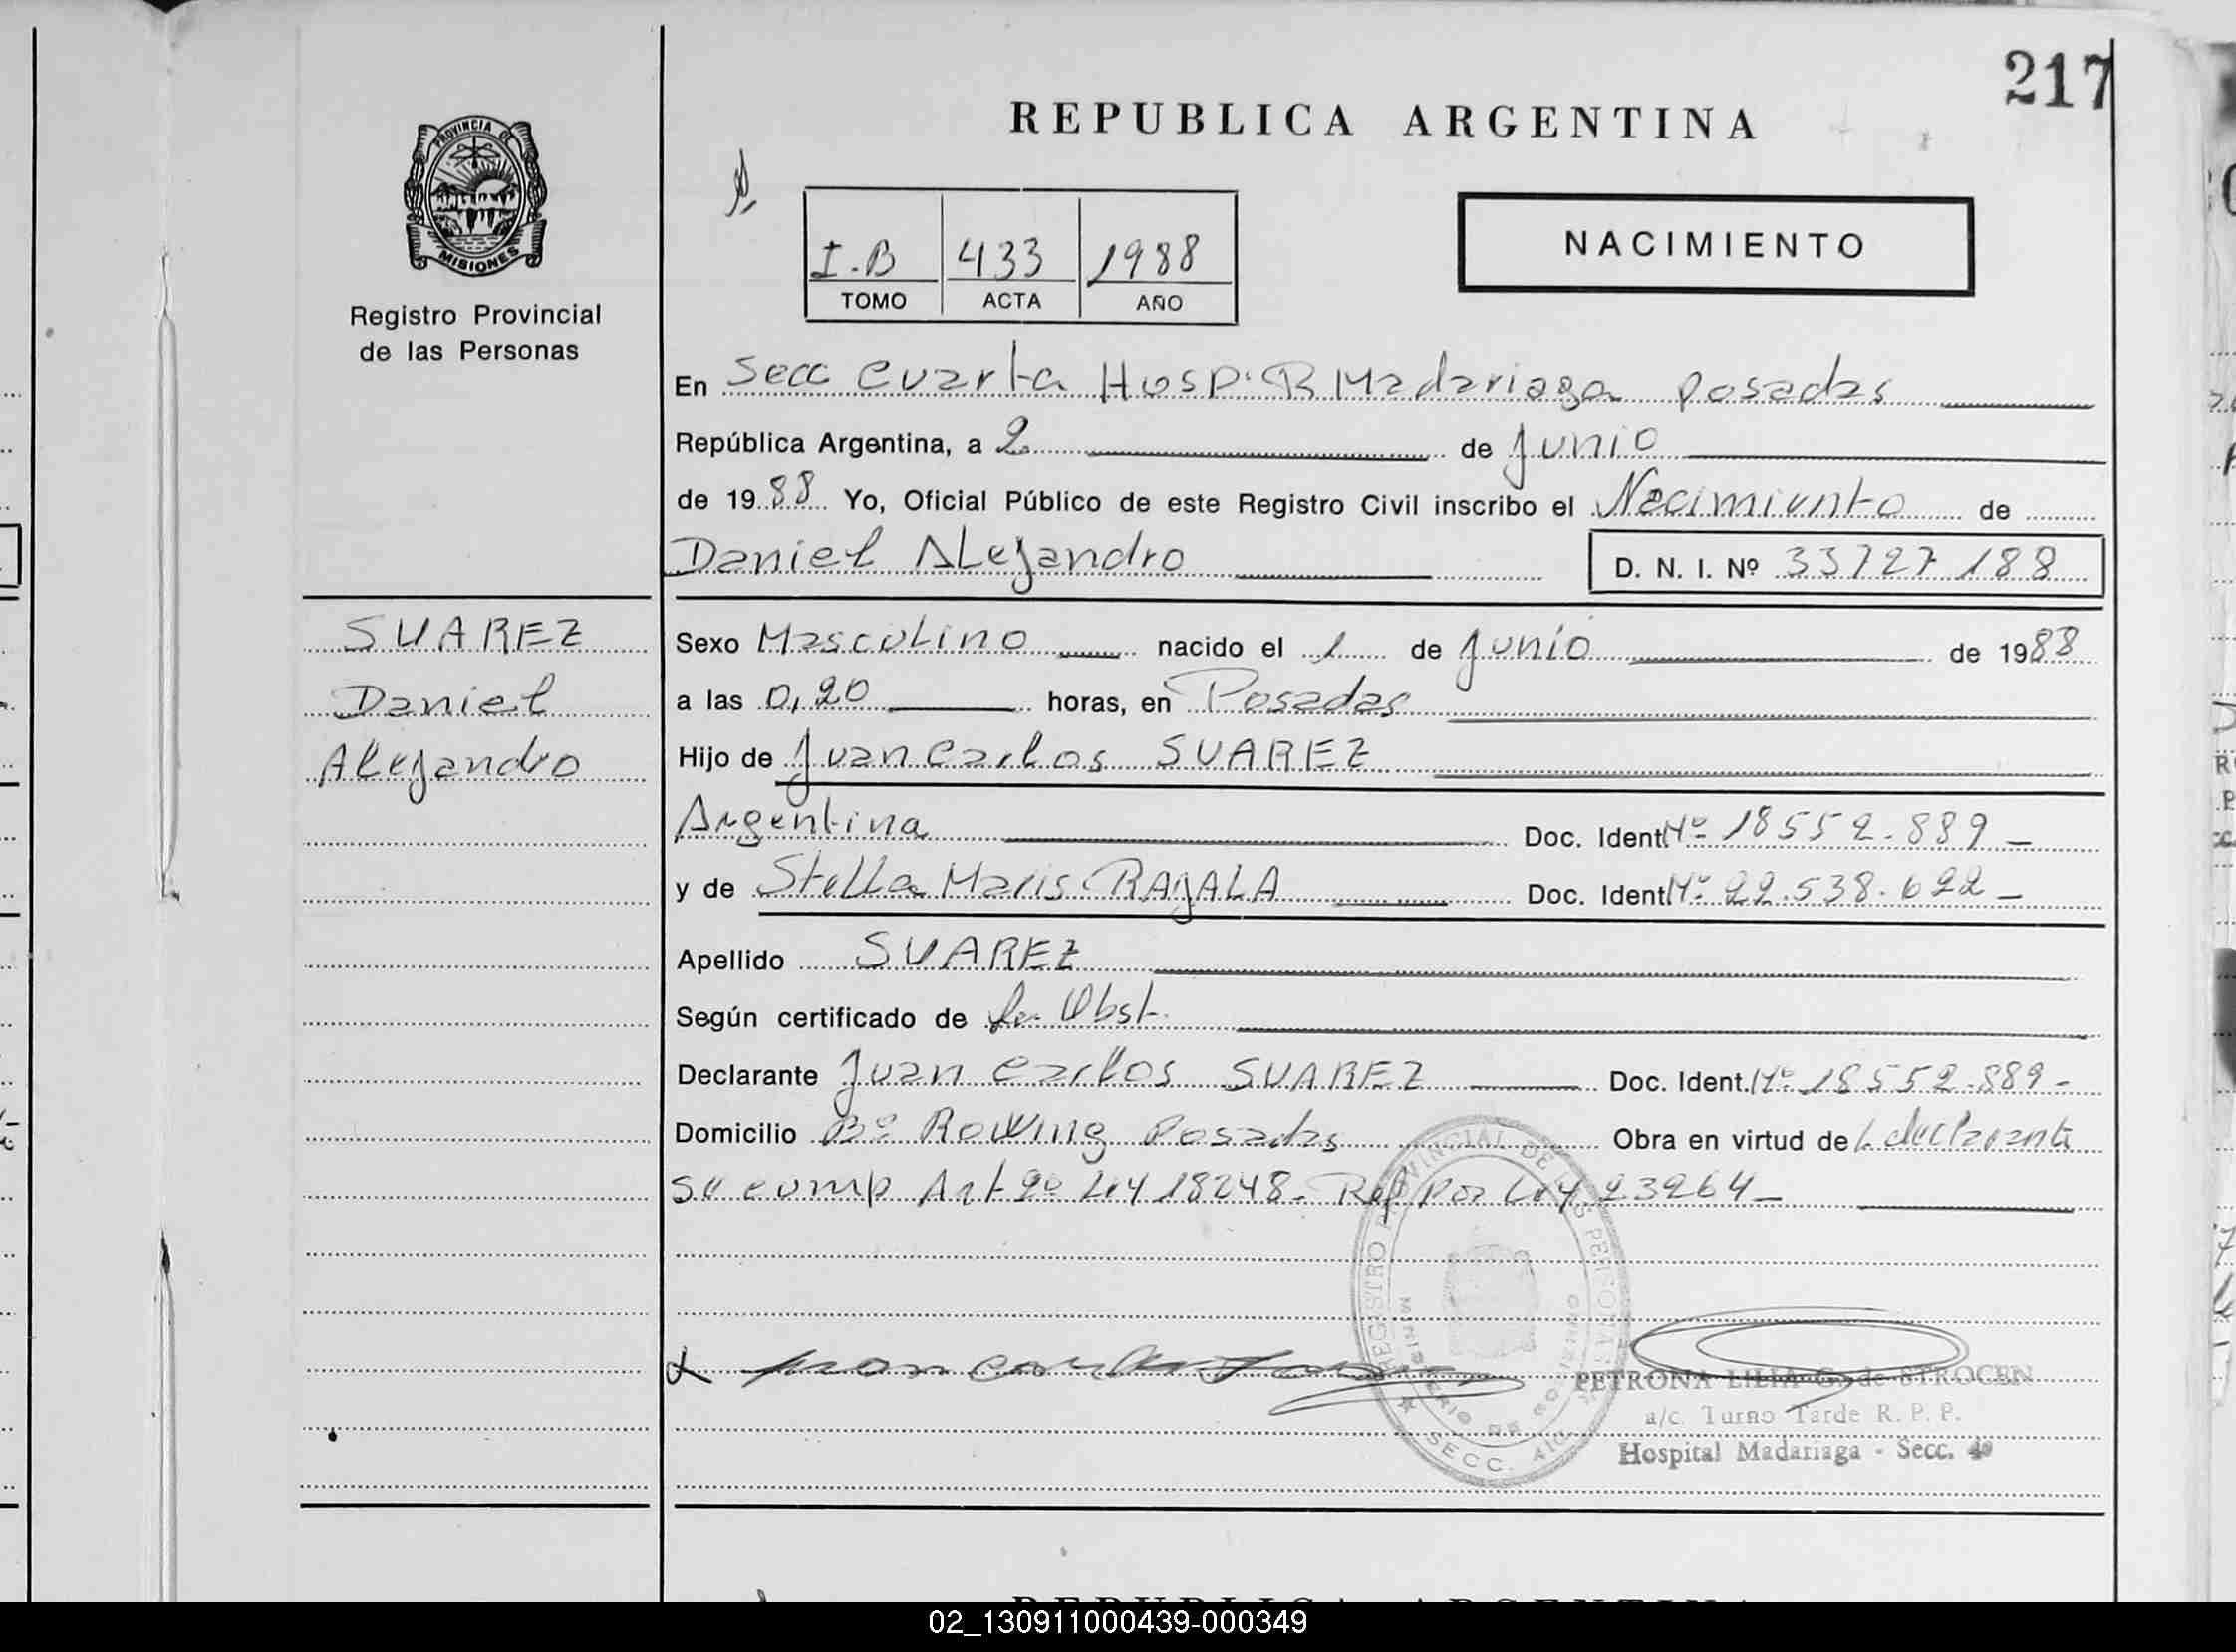 217
REPUBLICA ARGENTINA
PROVINCIA DE
MISIONES
Registro Provincial
de las Personas
I.B 433 1988
TOMO ACTA AÑO
NACIMIENTO
En Secc Cuarta Hosp. R Madariaga posadas
República Argentina, a 2 de Junio
de 1988 Yo, Oficial Público de este Registro Civil inscribo el Nacimiento de
Daniel Alejandro D. N. I. Nº 33727188
SUAREZ
Daniel
Alejandro
Sexo Masculino nacido el 1 de Junio de 1988
a las 0,20 horas, en Posadas
Hijo de Juan Carlos SUAREZ
Argentina Doc. Ident Nº 18552.889
y de Stella Maris RAJALA Doc. Ident Nº 22.538.622
Apellido SUAREZ
Según certificado de la Obst.
Declarante Juan Carlos SUAREZ Doc. Ident. Nº 18552.889-
Domicilio Bº Rowing Posadas Obra en virtud de L. declarante
se comp Art 2º Ley 18248. Ref por Ley 23264-
REGISTRO PROVINCIAL DE LAS PERSONAS
MINISTERIO DE GOBIERNO
SECC.
PETRONA LILIA G. de STROCEN
a/c. Turno Tarde R. P. P.
Hospital Madariaga - Secc. 4º
REPUBLICA ARGENTINA
02_130911000439-000349